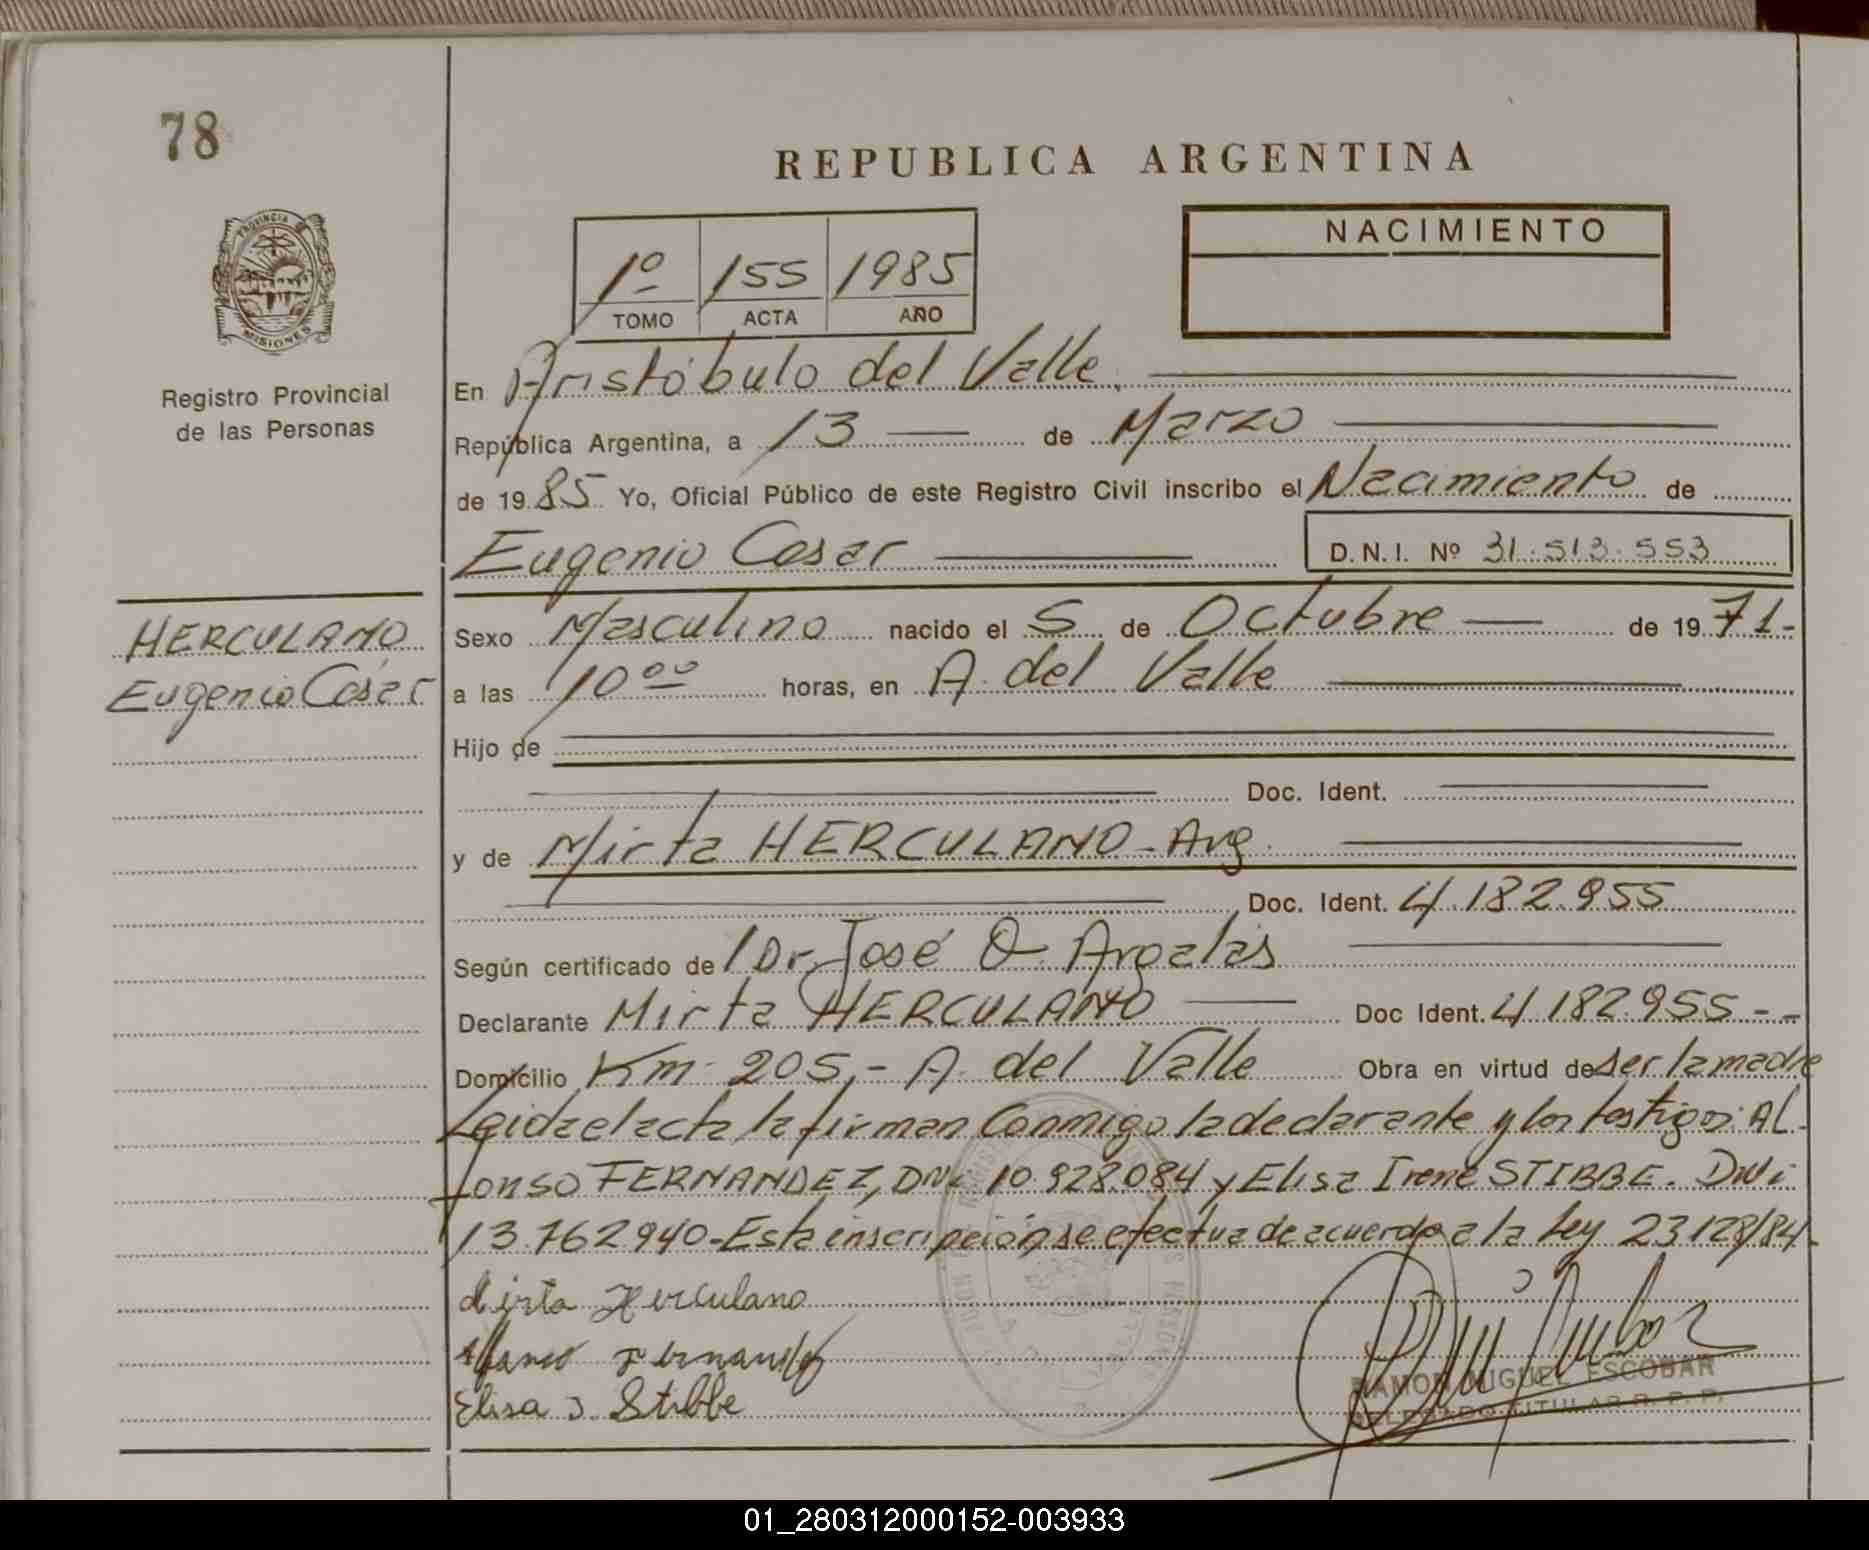 78
REPUBLICA ARGENTINA
PROVINCIA DE
MISIONES
1º 155 1985
TOMO ACTA AÑO
NACIMIENTO
Registro Provincial
de las Personas
En Aristóbulo del Valle,
República Argentina, a 13 de Marzo
de 1985 Yo, Oficial Público de este Registro Civil inscribo el Nacimiento de
Eugenio Cesar D.N.I. Nº 31.513.553
HERCULANO
Eugenio Cesar
Sexo Masculino nacido el 5 de Octubre de 1971-
a las 10 00 horas, en A. del Valle
Hijo de
Doc. Ident.
y de Mirta HERCULANO - Arg.
Doc. Ident. 4.182.955
Según certificado de Dr. José O. Argalas
Declarante Mirta HERCULANO Doc Ident. 4.182.955--
Domicilio Km. 205,- A. del Valle Obra en virtud de ser la madre
Leida el acta la firman Conmigo la declarante y los testigos: AL-
fonso FERNANDEZ, DNi 10.928.084 y Elisa Irene STIBBE. DNi
13.762940-Esta inscripción se efectua de acuerdo a la Ley 23128/84-
Mirta Herculano
Alfonso Fernandez
Elisa I. Stibbe
RAMON MIGUEL ESCOBAR
DELEGADO TITULAR R. P. P.
01_280312000152-003933